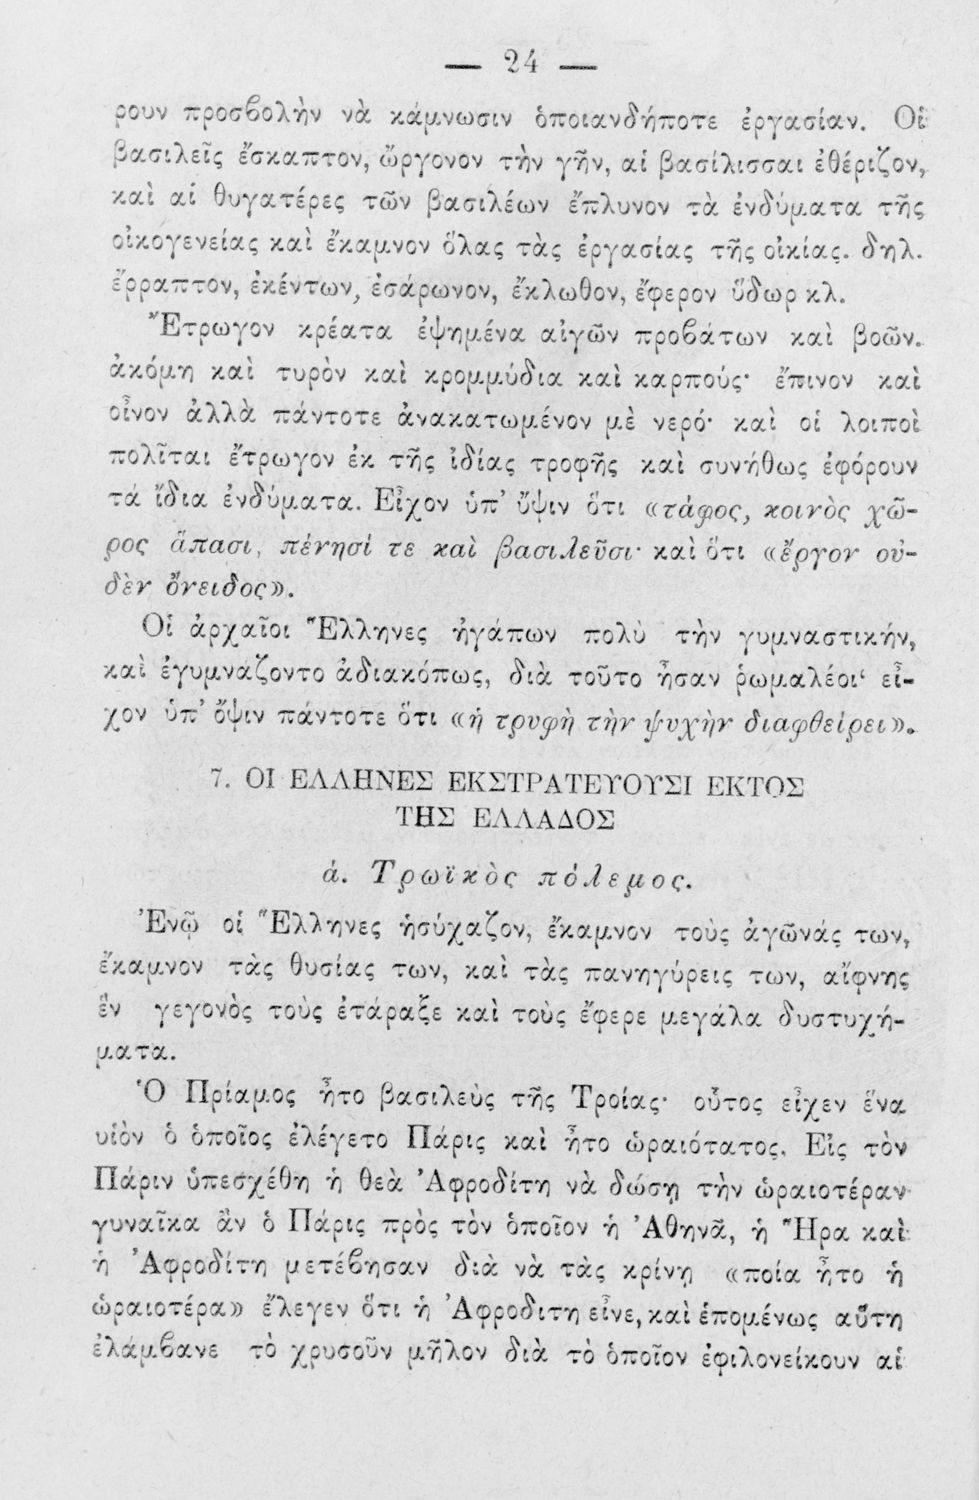 — 24 —
ρουν προσβολὴν νὰ κάμνωσιν ὁποιανδήποτε ἐργασίαν. Οἱ
βασιλεῖς ἔσκαπτον, ὤργονον τὴν γῆν, αἱ βασίλισσαι ἐθέριζον,
καὶ αἱ θυγατέρες τῶν βασιλέων ἔπλυνον τὰ ἐνδύματα τῆς
οἰκογενείας καὶ ἔκαμνον ὅλας τὰς ἐργασίας τῆς οἰκίας. δηλ.
ἔρραπτον, ἐκέντων, ἐσάρωνον, ἔκλωθον, ἔφερον ὕδωρ κλ.
Ἔτρωγον κρέατα ἐψημένα αἰγῶν προβάτων καὶ βοῶν.
ἀκόμη καὶ τυρὸν καὶ κρομμύδια καὶ καρπούς· ἔπινον καὶ
οἶνον ἀλλὰ πάντοτε ἀνακατωμένον μὲ νερό· καὶ οἱ λοιποὶ
πολῖται ἔτρωγον ἐκ τῆς ἰδίας τροφῆς καὶ συνήθως ἐφόρουν
τά ἴδια ἐνδύματα. Εἶχον ὑπ' ὄψιν ὅτι «τάφος, κοινὸς χῶ-
ρος ἅπασι, πένησί τε καὶ βασιλεῦσι· καὶ ὅτι «ἔργον οὐ-
δὲν ὄνειδος».
Οἱ ἀρχαῖοι Ἕλληνες ἠγάπων πολὺ τὴν γυμναστικήν,
καὶ ἐγυμνάζοντο ἀδιακόπως, διὰ τοῦτο ἦσαν ῥωμαλέοι‘ εἶ-
χον ὑπ' ὄψιν πάντοτε ὅτι «ἡ τρυφὴ τὴν ψυχὴν διαφθείρει».
7. ΟΙ ΕΛΛΗΝΕΣ ΕΚΣΤΡΑΤΕΥΟΥΣΙ ΕΚΤΟΣ
ΤΗΣ ΕΛΛΑΔΟΣ
ά. Τρωϊκὸς πόλεμος.
Ἐνῷ οἱ Ἕλληνες ἡσύχαζον, ἔκαμνον τοὺς ἀγῶνάς των,
ἔκαμνον τὰς θυσίας των, καὶ τὰς πανηγύρεις των, αἴφνης
ἓν γεγονὸς τοὺς ἐτάραξε καὶ τοὺς ἔφερε μεγάλα δυστυχή-
ματα.
Ὁ Πρίαμος ἦτο βασιλεὺς τῆς Τροίας· οὗτος εἶχεν ἕνα
υἱὸν ὁ ὁποῖος ἐλέγετο Πάρις καὶ ἦτο ὡραιότατος. Εἰς τὸν
Πάριν ὑπεσχέθη ἡ θεὰ Ἀφροδίτη νὰ δώσῃ τὴν ὡραιοτέραν
γυναῖκα ἂν ὁ Πάρις πρὸς τὸν ὁποῖον ἡ Ἀθηνᾶ, ἡ Ἥρα καὶ
ἡ Ἀφροδίτη μετέβησαν διὰ νὰ τὰς κρίνῃ «ποία ἦτο ἡ
ὡραιοτέρα» ἔλεγεν ὅτι ἡ Ἀφροδιτη εἶνε, καὶ ἑπομένως αὕτη
ἐλάμβανε τὸ χρυσοῦν μῆλον διὰ τὸ ὁποῖον ἐφιλονείκουν αἱ